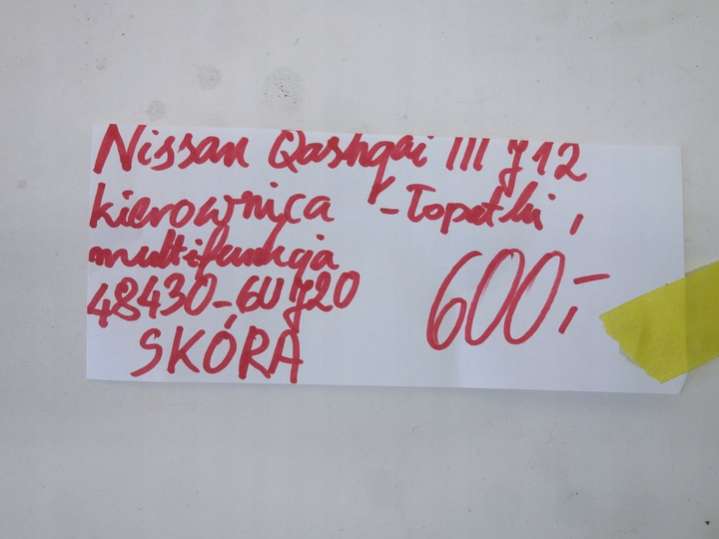 Nissan Qashqai III J12
kierownica - łopatki,
multifunkcja
48430-6UJ20
SKÓRA
600,-